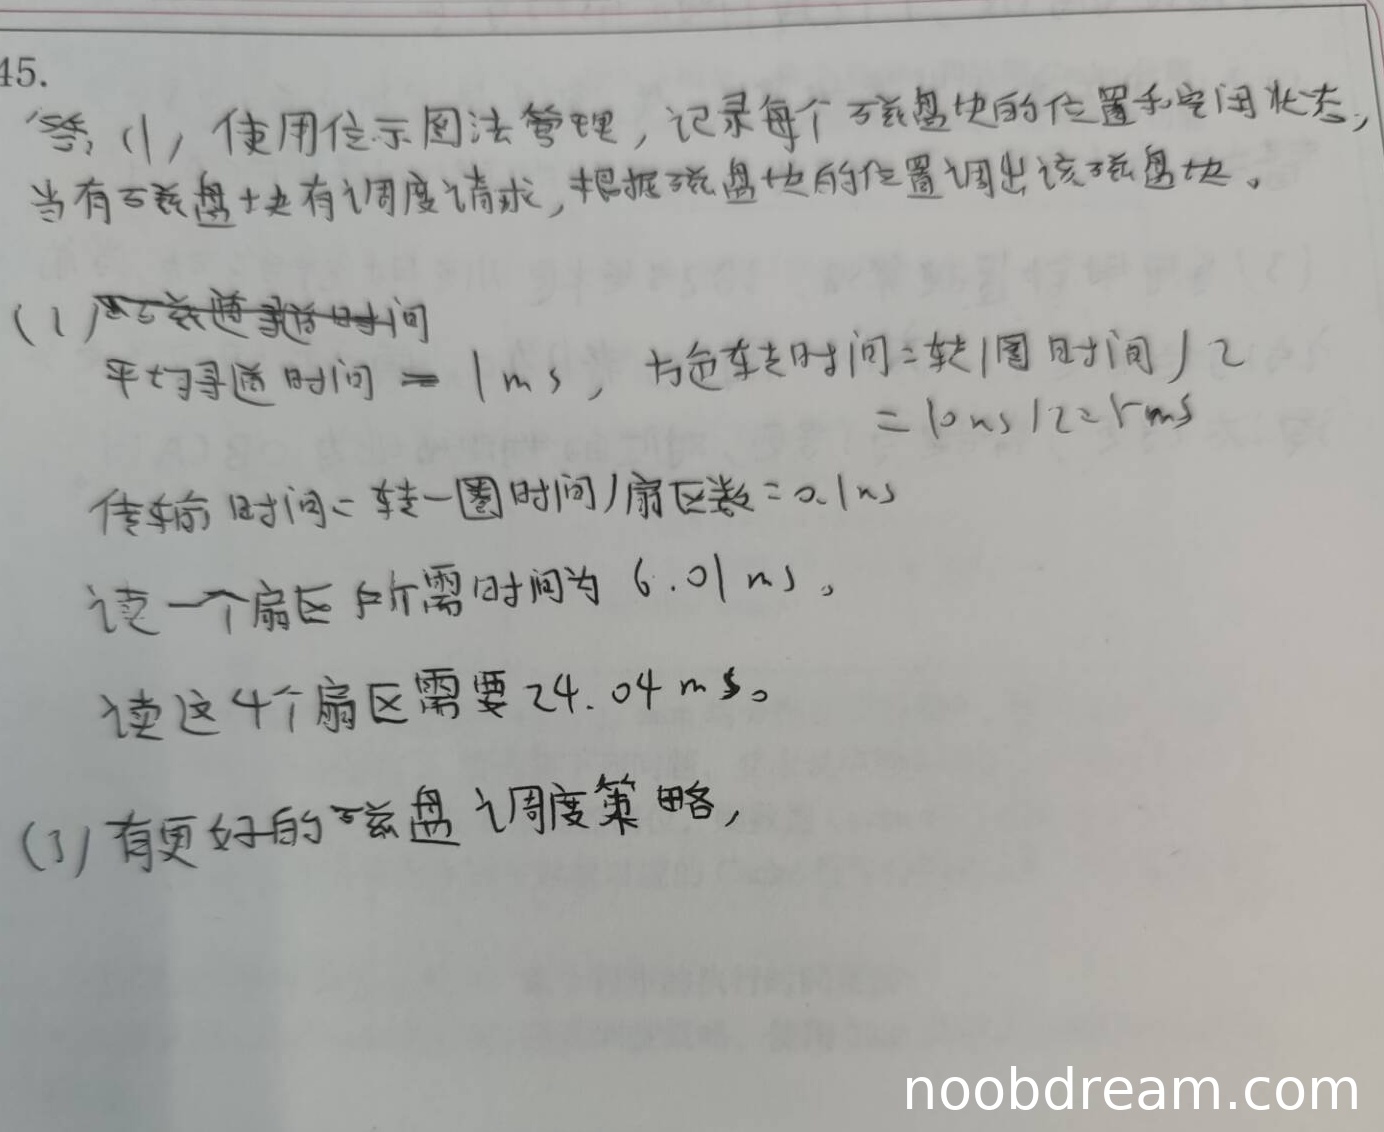 45.
答:(1)使用位示图法管理,记录每个磁盘块的位置和空闲状态,
当有磁盘块有调度请求,根据磁盘块的位置调出该磁盘块。
(2)
平均寻道时间=1ms,旋转时间=转1圈时间/2
=10ms/2=5ms
传输时间=转一圈时间/扇区数=0.1ms
读一个扇区所需时间为6.01ms。
读这4个扇区需要24.04ms。
(3)有更好的磁盘调度策略,
noobdream.com